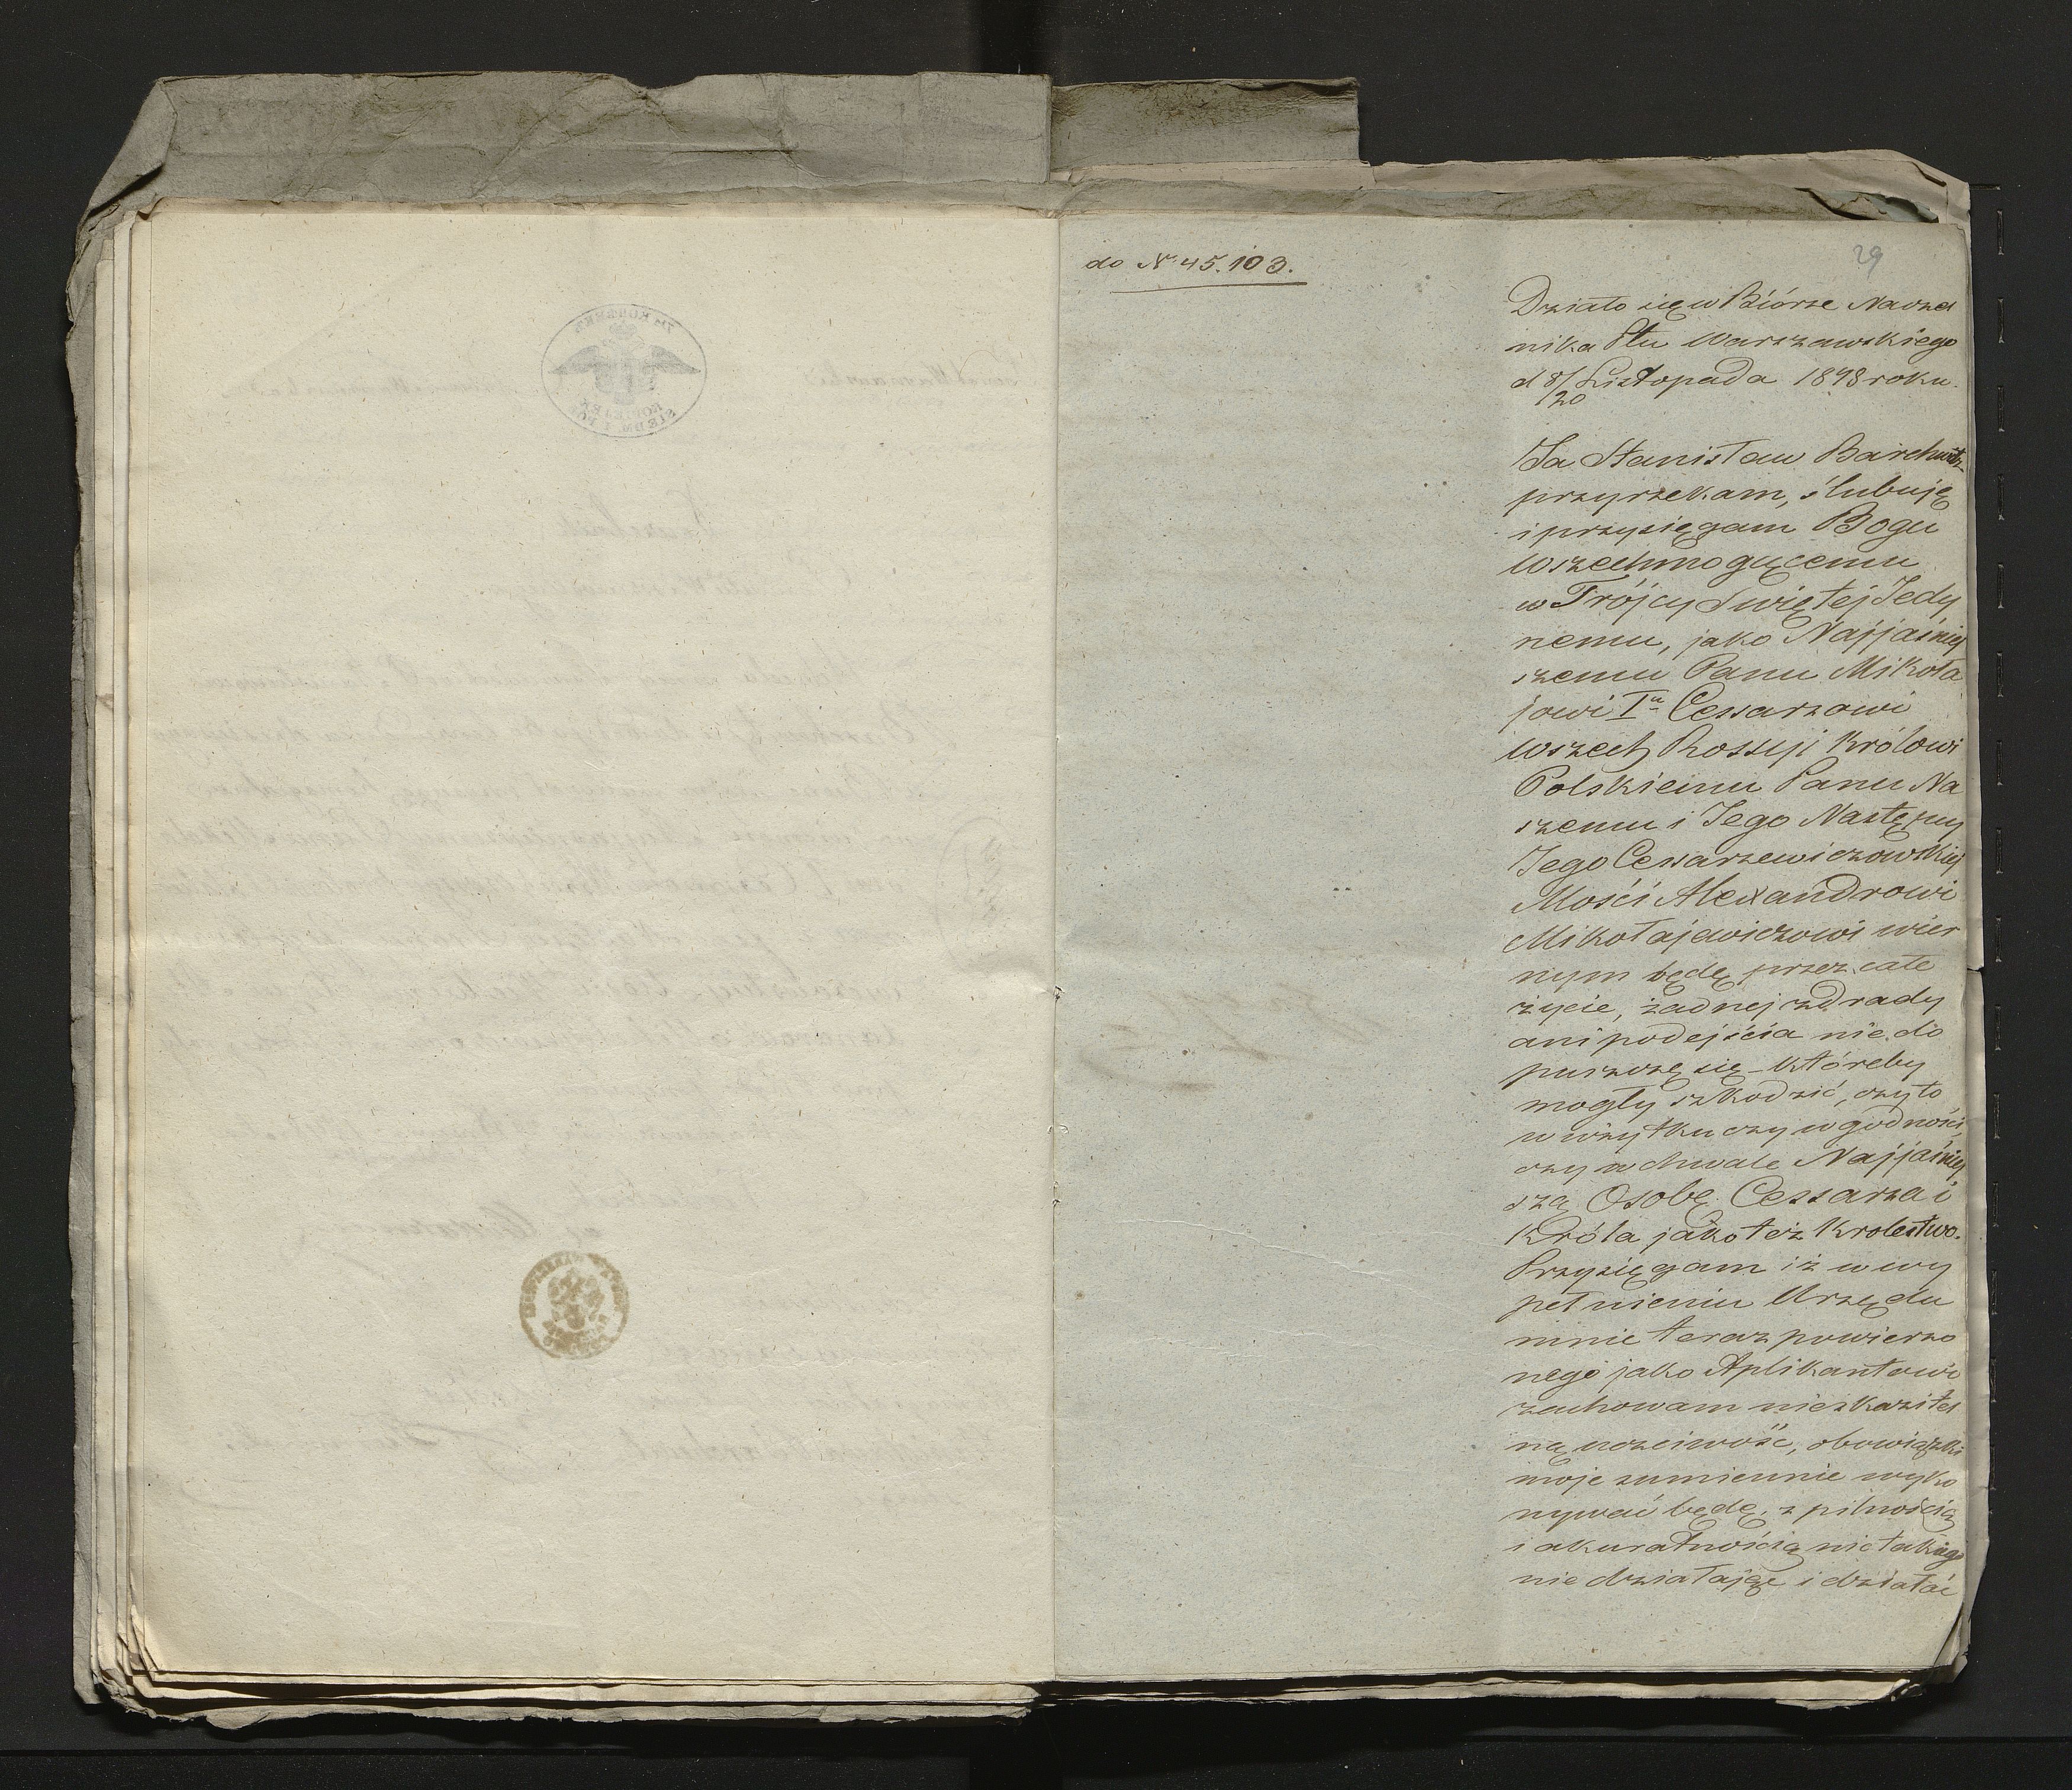 do N. 45.103.
29
Działo się w Biórze Naczel
nika Ptu Warszawskiego
d 8/20 Listopada 1848 roku.
Ja Stanisław Barchwitz
przyrzekam, ślubuję
i przysięgam Bogu
Wszechmogącemu
w Trójcy Swiętej Jedy
nemu, jako Najjaśniej
szemu Panu Mikoła
jowi Iu Cessarzowi
Wszech Rossyji Królowi
Polskiemu Panu Na
szemu i Jego Następcy
Jego Cesarzewiczowskiej
Mości Alexandrowi
Mikołajewiczowi wier
nym będę przez całe
życie, żadnej zdrady
ani podejścia nie do
puszczę się - któreby
mogły szkodzić, czy to
w użytku czy w godności,
czy w chwale Najjaśniej
szą Osobę Cessarza i
Króla jako też Krolestwo.
Przysięgam iż w wy
pełnieniu Urzędu
mnie teraz powierzo
nego jako Aplikantowi
zachowam nieskazitel
ną uczciwość, obowiązki
moje sumiennie wyko
nywać będę, z pilnością
i akuratnością nic takiego
nie działając i działać